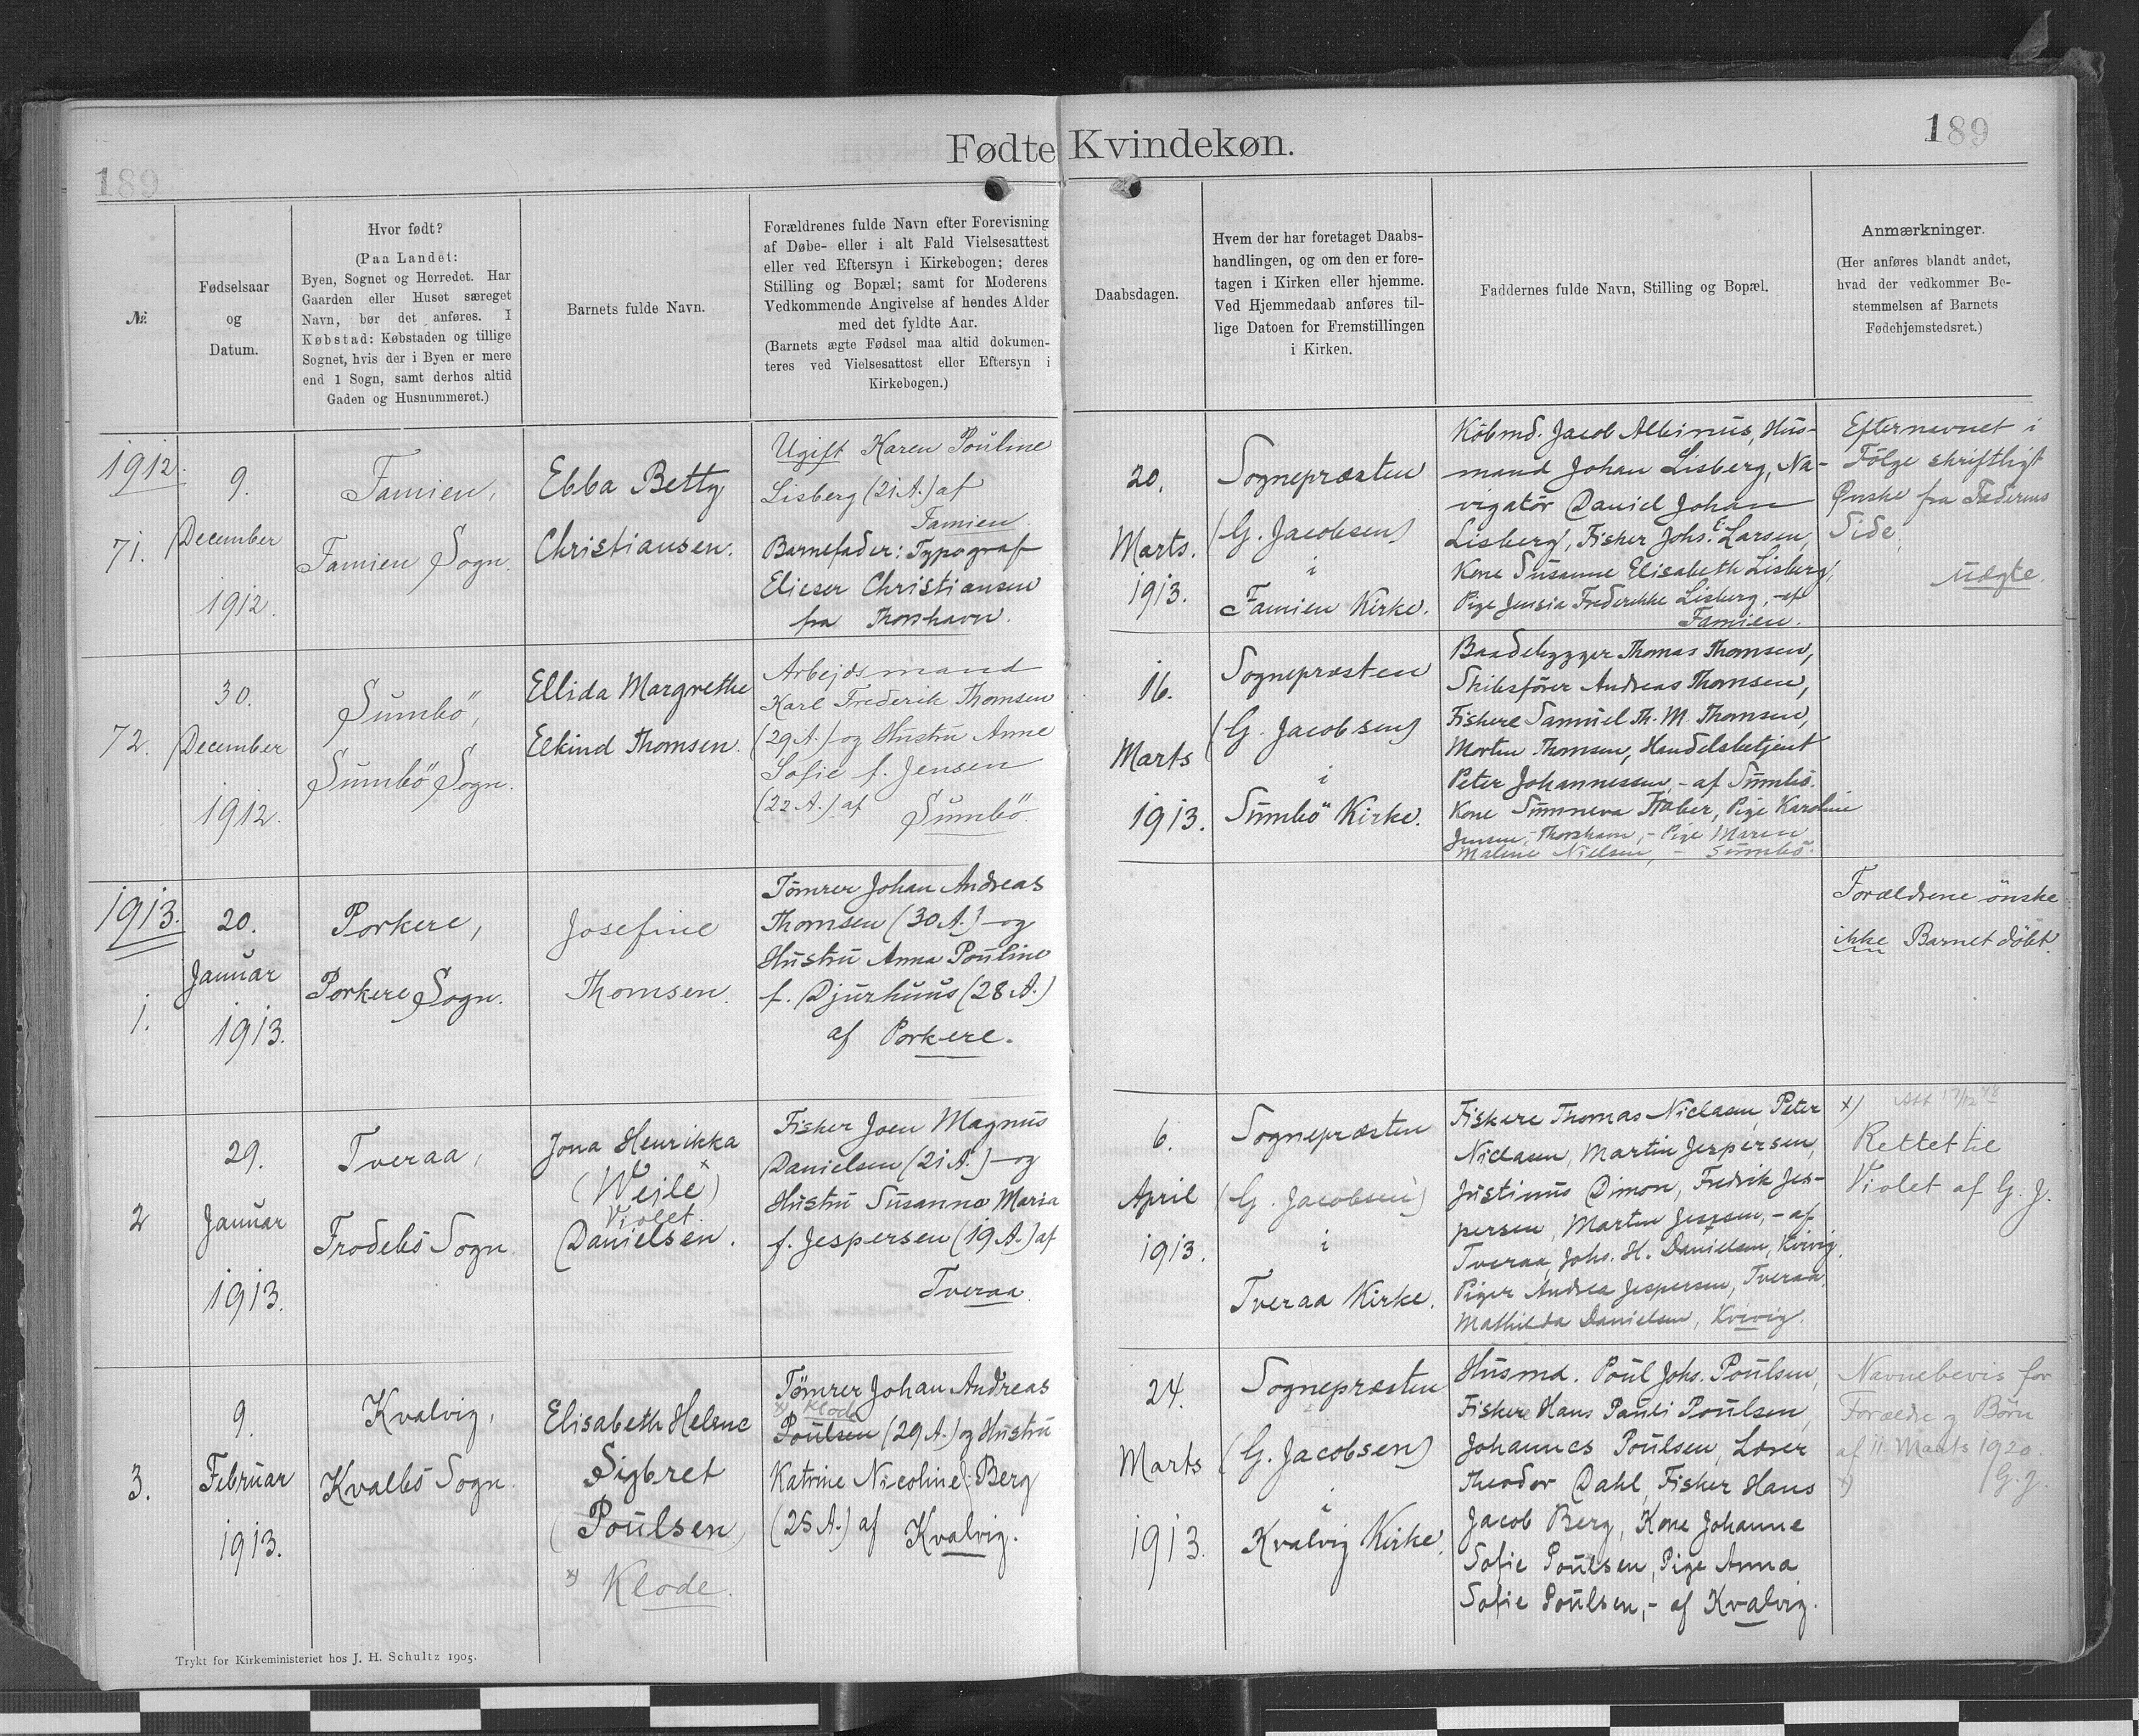 Fødte Kvindekøn.
189
189
№.
Fødselsaar
og
Datum.
Hvor født?
(Paa Landet:
Byen, Sognet og Herredet. Har
Gaarden eller Huset særeget
Navn, bør det anføres. I
Købstad: Købstaden og tillige
Sognet, hvis der i Byen er mere
end 1 Sogn, samt derhos altid
Gaden og Husnummeret.)
Barnets fulde Navn.
Forældrenes fulde Navn efter Forevisning
af Døbe- eller i alt Fald Vielsesattest
eller ved Eftersyn i Kirkebogen; deres
Stilling og Bopæl; samt for Moderens
Vedkommende Angivelse af hendes Alder
med det fyldte Aar.
(Barnets ægte Fødsel maa altid dokumen-
teres ved Vielsesattest eller Eftersyn i
Kirkebogen.)
Daabsdagen.
Hvem der har foretaget Daabs-
handlingen, og om den er fore-
tagen i Kirken eller hjemme.
Ved Hjemmedaab anføres til-
lige Datoen for Fremstillingen
i Kirken.
Faddernes fulde Navn, Stilling og Bopæl.
Anmærkninger.
(Her anføres blandt andet,
hvad der vedkommer Be-
stemmelsen af Barnets
Fødehjemstedsret.)
1912.
71.
9.
December
1912.
Famien,
Famien Sogn.
Ebba Betty
Christiansen.
Ugift Karen Pouline
Lisberg (21 A.) af
Famien.
Barnefader: Typograf
Elieser Christiansen
fra Thorshavn.
20.
Marts.
1913.
Sognepræsten
(G. Jacobsen)
i
Famien Kirke.
Købmd. Jacob Albinus, Hus-
mand Johan Lisberg, Na-
vigatör Daniel Johan
Lisberg, Fisker Johs. E. Larsen,
Kone Susanne Elisabeth Lisberg,
Pige Jensia Frederikke Lisberg, - af
Famien.
Efternavnet i
Følge skriftligt
Ønske fra Faderens
Side.
Uægte.
72.
30.
December
1912.
Sumbö,
Sumbö Sogn.
Ellida Margrethe
Elkind Thomsen.
Arbejdsmand
Karl Frederik Thomsen
(29 A.) og Hustru Anne
Sofie f. Jensen
(22 A.) af Sumbö.
16.
Marts
1913.
Sognepræsten
(G. Jacobsen)
i
Sumbö Kirke.
Baadebygger Thomas Thomsen,
Skibsförer Andreas Thomsen,
Fiskere Samuel Th. M. Thomsen,
Morten Thomsen, Handelsbetjent
Peter Johannessen, - af Sumbö.
Kone Sunneva Faber, Pige Karoline
Jensen, Thorshavn, - Pige Maren
Malene Nielsen, - Sumbö.
1913.
1.
20.
Januar
1913.
Porkere,
Porkere Sogn.
Josefine
Thomsen.
Tömrer Johan Andreas
Thomsen (30 A.) - og
Hustru Anna Pouline
f. Djurhuus (28 A.)
af Porkere.
Forældrene önske
ikke Barnet döbt.
2
29.
Januar
1913.
Tveraa,
Frodebö Sogn.
Jona Henrikka
(Wejle) x
Violet.
Danielsen.
Fisker Joen Magnus
Danielsen (21 A.) - og
Hustru Susanna Maria
f. Jespersen (19 A.) af
Tveraa.
6.
April
1913.
Sognepræsten
(G. Jacobsen)
i
Tveraa Kirke.
Fiskere Thomas Niclasen, Peter
Niclasen, Martin Jespersen,
Justinus Dimon, Fredrik Jes-
persen, Martin Jespersen, - af
Tveraa, Johs. H. Danielsen, Kvivig.
Piger Andrea Jespersen, Tveraa.
Mathilda Danielsen, Kvivig.
x) Att 17/12 48
Rettet til
Violet af G. J.
3.
9.
Februar
1913.
Kvalvig,
Kvalbö Sogn.
Elisabeth Helene
Sigbret
(Poulsen)
x) Klode.
Tömrer Johan Andreas
x) Klode
Poulsen (29 A.) og Hustru
Katrine Nicoline f. Berg
(25 A.) af Kvalvig.
24.
Marts
1913.
Sognepræsten
(G. Jacobsen)
i
Kvalvig Kirke.
Husmd. Poul Johs. Poulsen,
Fiskere Hans Pauli Poulsen,
Johannes Poulsen, Lærer
Theodor Dahl, Fisker Hans
Jacob Berg, Kone Johanne
Sofie Poulsen, Pige Anna
Sofie Poulsen, - af Kvalvig.
Navnebevis for
Forældre og Børn
af 11. Marts 1920.
x) G. J.
Trykt for Kirkeministeriet hos J. H. Schultz 1905.